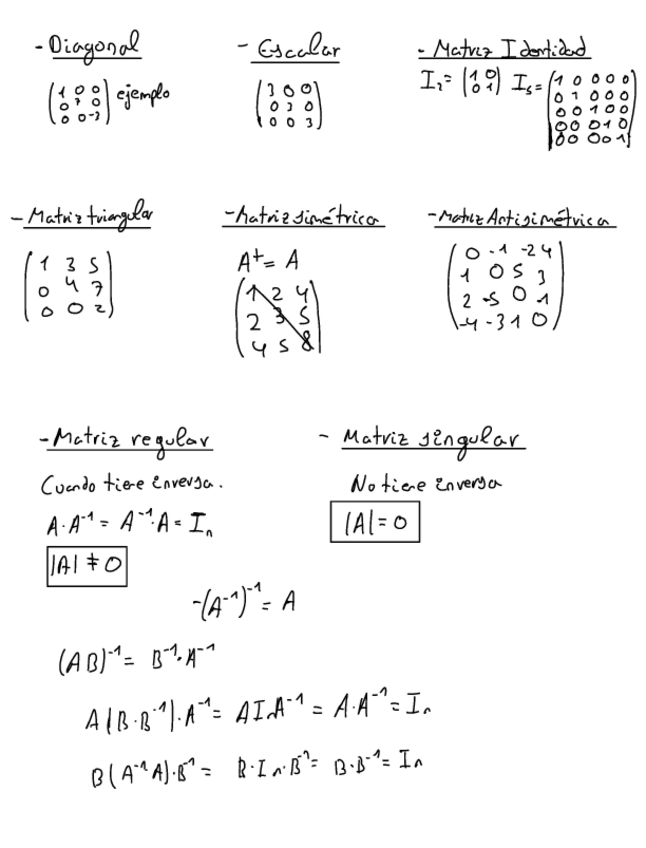 - Diagonal
(1 0 0
0 7 0
0 0 -3) ejemplo
- Escalar
(3 0 0
0 3 0
0 0 3)
- Matriz Identidad
I₂= (1 0
0 1) I₅= (1 0 0 0 0
0 1 0 0 0
0 0 1 0 0
0 0 0 1 0
0 0 0 0 1)
- Matriz triangular
(1 3 5
0 4 7
0 0 2)
- Matriz simétrica
A^t = A
(1 2 4
2 3 5
4 5 8)
- Matriz Antisimétrica
(0 -1 -2 4
1 0 5 3
2 -5 0 1
-4 -3 1 0)
- Matriz regular
Cuando tiene inversa.
A·A⁻¹ = A⁻¹·A = Iₙ
|A| ≠ 0
- Matriz singular
No tiene inversa
|A| = 0
-(A⁻¹)⁻¹ = A
(AB)⁻¹ = B⁻¹·A⁻¹
A(B·B⁻¹)·A⁻¹ = A Iₙ A⁻¹ = A·A⁻¹ = Iₙ
B(A⁻¹A)·B⁻¹ = B·Iₙ·B⁻¹ = B·B⁻¹ = Iₙ